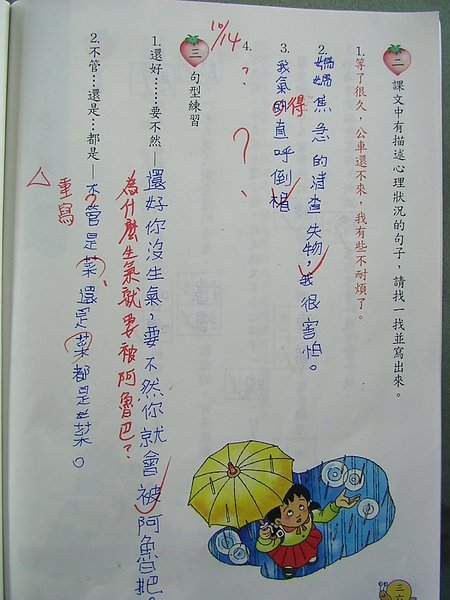 二 課文中有描述心理狀況的句子，請找一找並寫出來。
1.等了很久，公車還不來，我有些不耐煩了。
2.媽媽焦急的清查失物，我很害怕。
3.我氣的直呼倒楣
得
4.
？
？
10/14
三 句型練習
1.還好……要不然—還好你沒生氣，要不然你就會被阿魯把。
為什麼生氣就要被阿魯巴？
2.不管…還是…都是—不管是菜還是菜都是菜。
重寫